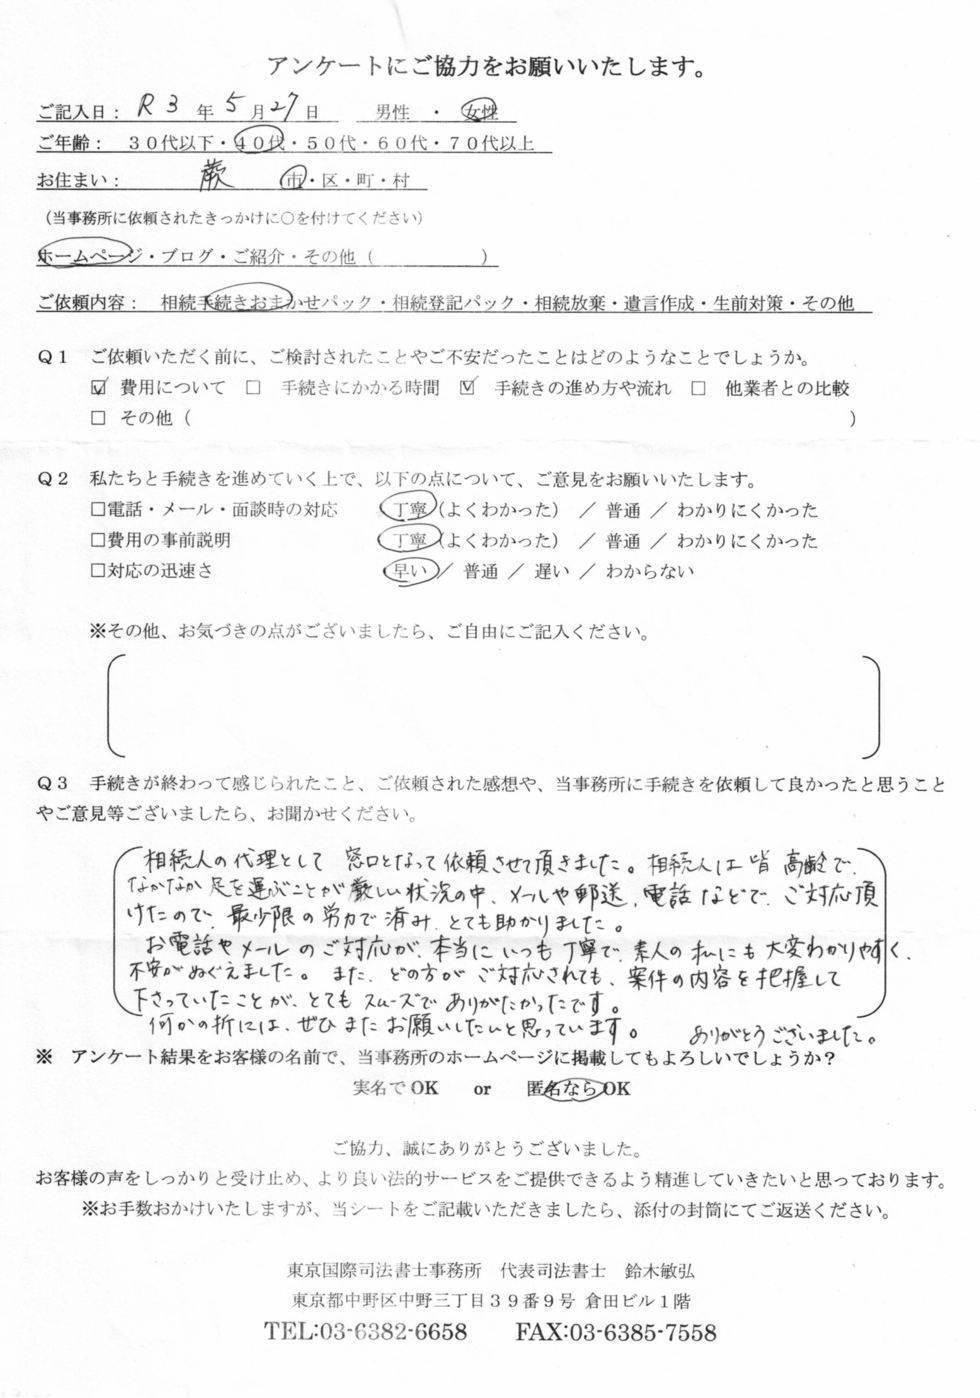 アンケートにご協力をお願いいたします。
ご記入日： R3 年 5 月 27 日　男性 ・ 女性
ご年齢： ３０代以下・４０代・５０代・６０代・７０代以上
お住まい： 蕨 市・区・町・村
（当事務所に依頼されたきっかけに〇を付けてください）
ホームページ・ブログ・ご紹介・その他（　　　　　　）
ご依頼内容： 相続手続きおまかせパック・相続登記パック・相続放棄・遺言作成・生前対策・その他
Ｑ１　ご依頼いただく前に、ご検討されたことやご不安だったことはどのようなことでしょうか。
☑ 費用について　□ 手続きにかかる時間　☑ 手続きの進め方や流れ　□ 他業者との比較
□ その他（　　　　　　　　　　）
Ｑ２　私たちと手続きを進めていく上で、以下の点について、ご意見をお願いいたします。
□電話・メール・面談時の対応　丁寧（よくわかった） ／ 普通 ／ わかりにくかった
□費用の事前説明　丁寧（よくわかった） ／ 普通 ／ わかりにくかった
□対応の迅速さ　早い ／ 普通 ／ 遅い ／ わからない
※その他、お気づきの点がございましたら、ご自由にご記入ください。
Ｑ３　手続きが終わって感じられたこと、ご依頼された感想や、当事務所に手続きを依頼して良かったと思うこと
やご意見等ございましたら、お聞かせください。
相続人の代理として 窓口となって依頼させて頂きました。相続人は皆 高齢で、
なかなか足を運ぶことが厳しい状況の中、メールや郵送、電話などで、ご対応頂
けたので、最少限の労力で済み、とても助かりました。
お電話やメールのご対応が、本当にいつも丁寧で、素人の私にも大変わかりやすく、
不安がぬぐえました。また、どの方がご対応されても、案件の内容を把握して
下さっていたことが、とてもスムーズでありがたかったです。
何かの折には、ぜひまたお願いしたいと思っています。　ありがとうございました。
※　アンケート結果をお客様の名前で、当事務所のホームページに掲載してもよろしいでしょうか？
実名でOK　or　匿名ならOK
ご協力、誠にありがとうございました。
お客様の声をしっかりと受け止め、より良い法的サービスをご提供できるよう精進していきたいと思っております。
※お手数おかけいたしますが、当シートをご記載いただきましたら、添付の封筒にてご返送ください。
東京国際司法書士事務所　代表司法書士　鈴木敏弘
東京都中野区中野三丁目３９番９号 倉田ビル１階
TEL:03-6382-6658　FAX:03-6385-7558